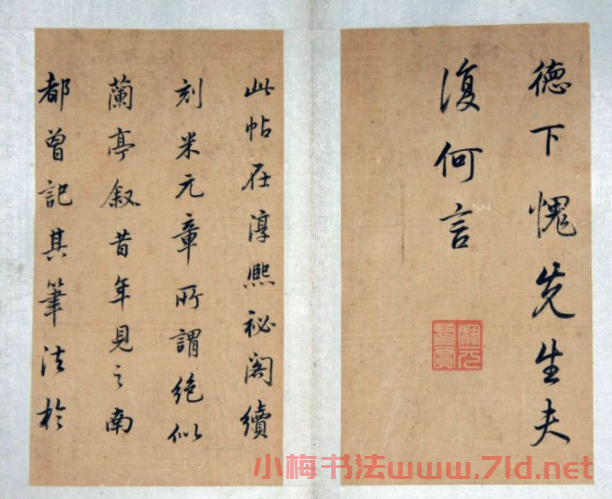 德下愧先生夫
復何言
此帖在淳熙祕閣續
刻米元章所謂絶似
蘭亭叙昔年見之南
都曾記其筆法於
小梅书法www.7ld.net